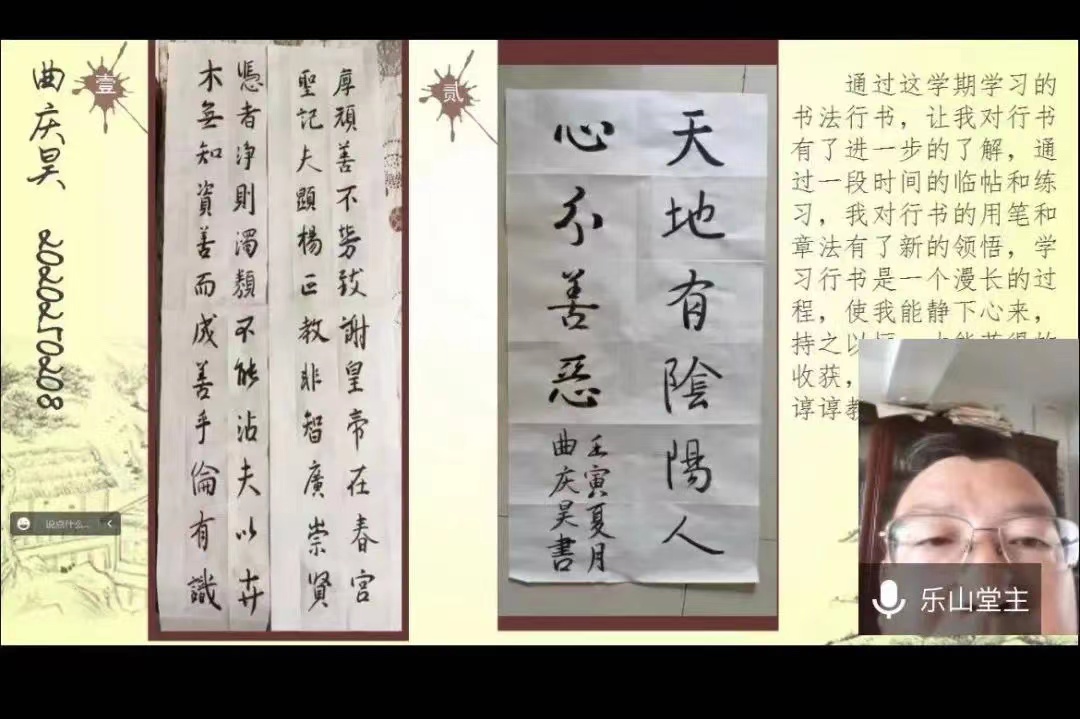 曲庆昊 2020250208
壹
厚頑善不劳致謝皇帝在春宮
聖記夫顯揚正教非智廣崇賢
憑者浄則濁類不能沾夫以卉
木無知資善而成善乎倫有識
贰
天地有陰陽人
心分善惡
壬寅夏月
曲庆昊書
通过这学期学习的
书法行书，让我对行书
有了进一步的了解，通
过一段时间的临帖和练
习，我对行书的用笔和
章法有了新的领悟，学
习行书是一个漫长的过
程，使我能静下心来，
持之以
收获，
谆谆教
说点什么...
乐山堂主